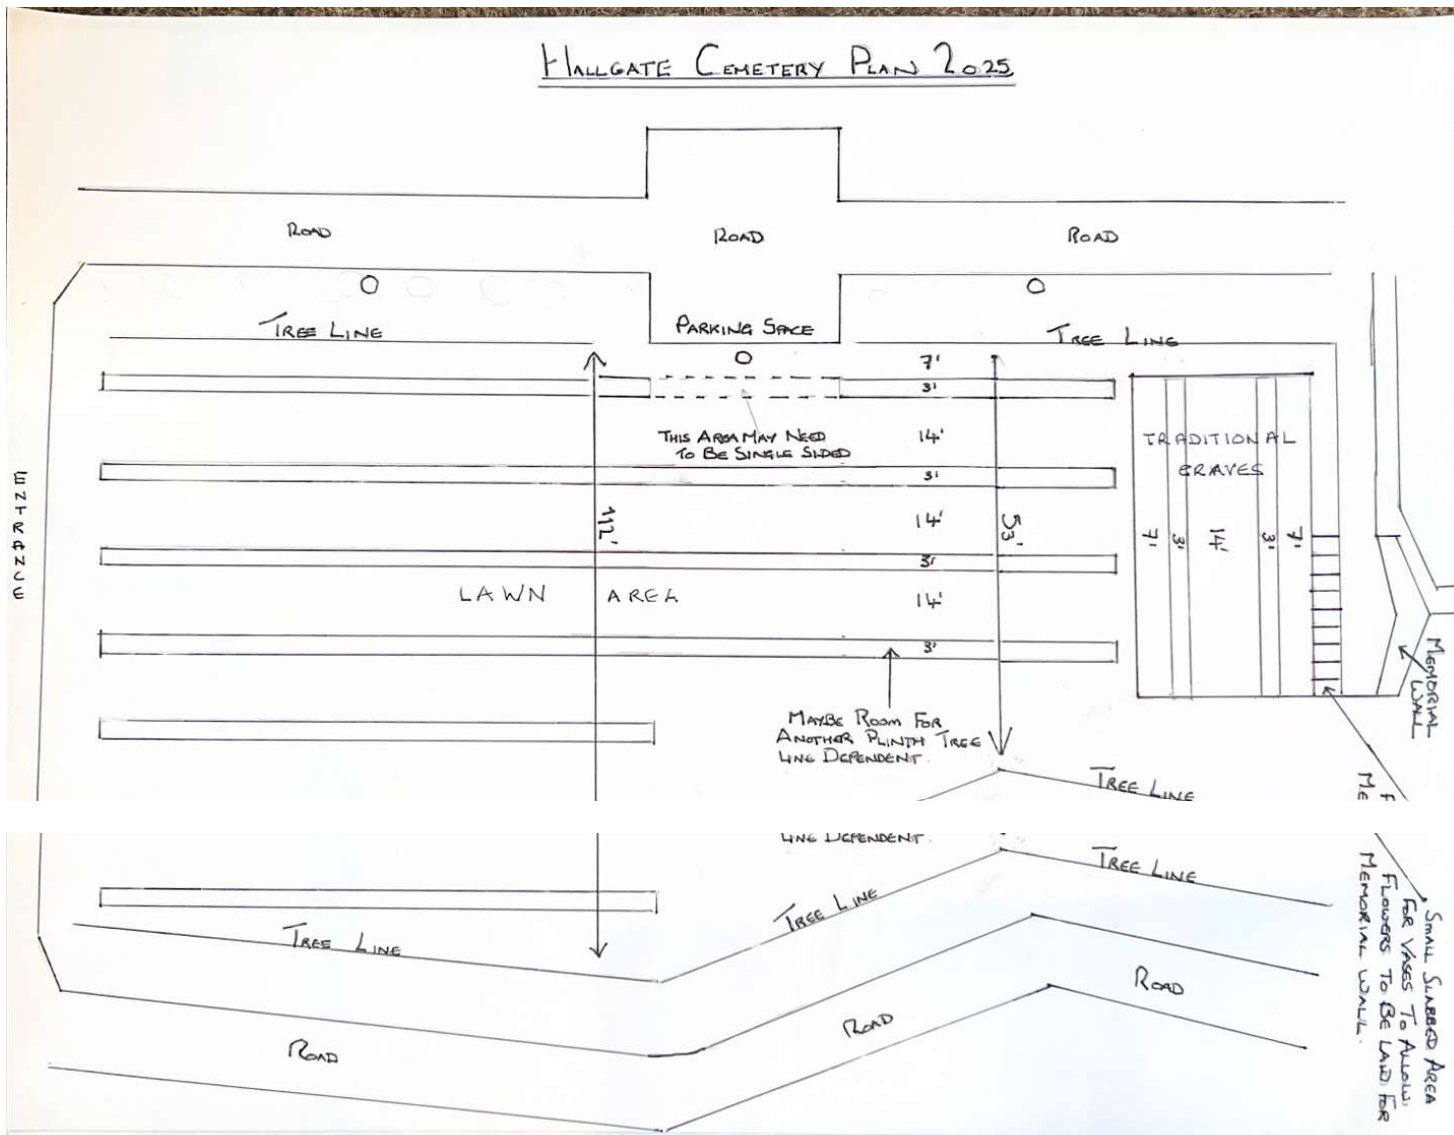 HALLGATE CEMETERY PLAN 2025
ROAD
ROAD
ROAD
TREE LINE
PARKING SPACE
TREE LINE
7'
3'
THIS AREA MAY NEED
TO BE SINGLE SIDED
14'
3'
14'
3'
14'
3'
112'
53'
TRADITIONAL
GRAVES
7'
3'
14'
3'
7'
ENTRANCE
LAWN AREA
MEMORIAL
WALL
MAYBE ROOM FOR
ANOTHER PLINTH TREE
LINE DEPENDENT.
TREE LINE
F
ME
LINE DEPENDENT.
TREE LINE
TREE LINE
TREE LINE
ROAD
ROAD
ROAD
SMALL SLABBED AREA
FOR VASES TO ALLOW
FLOWERS TO BE LAID FOR
MEMORIAL WALL.